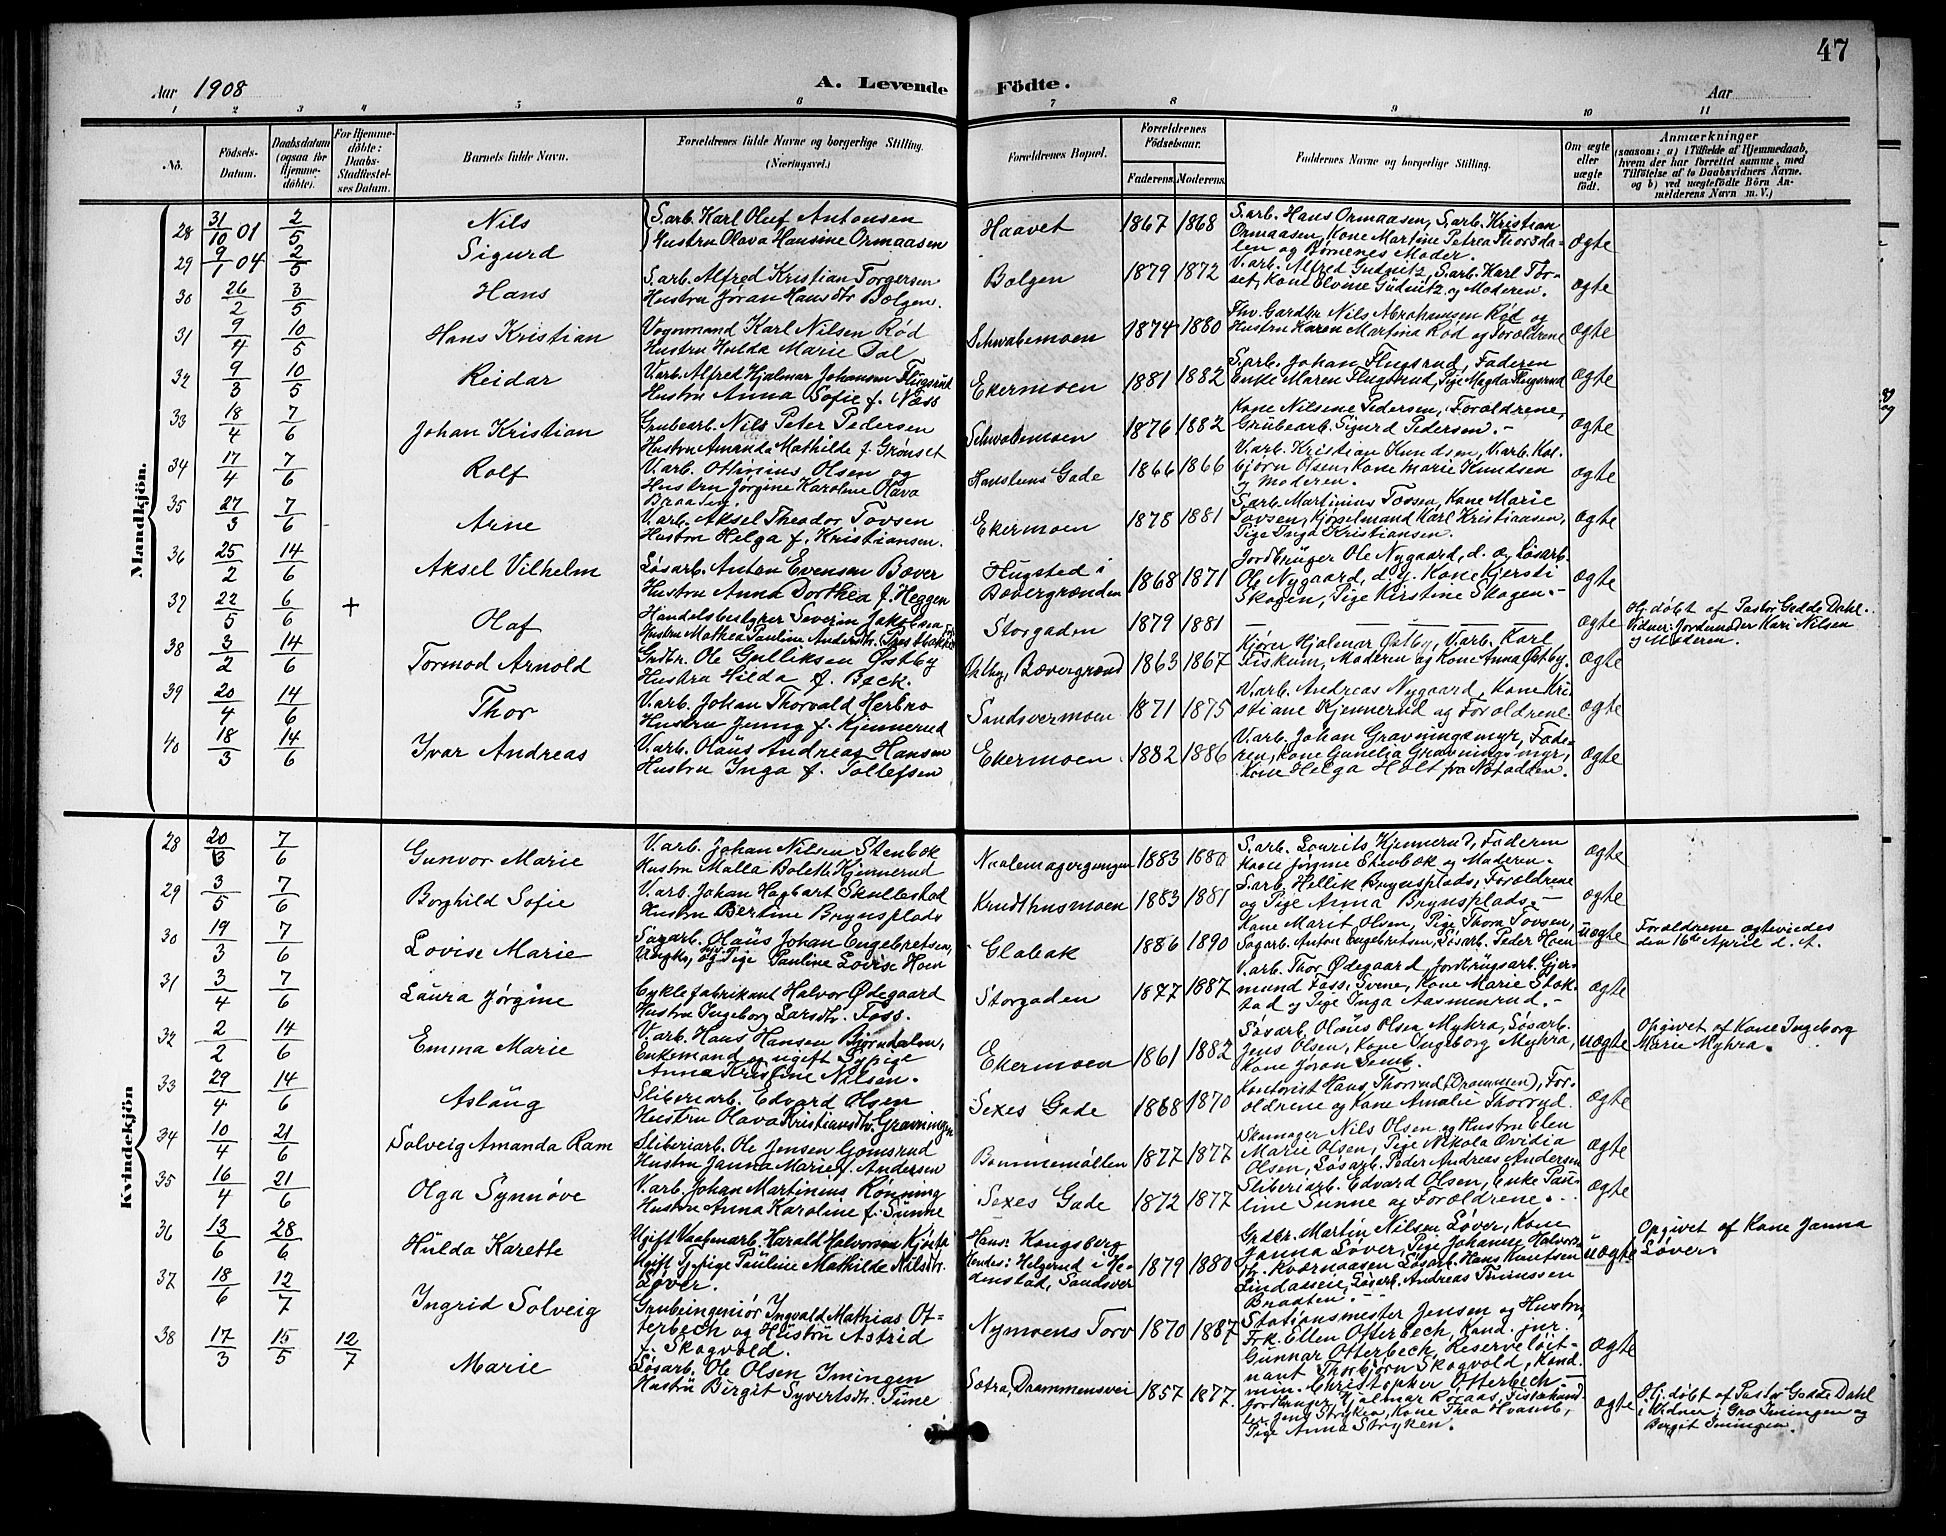 47
Aar 1908
A. Levende Födte.
Aar
1 2 3 4 5 6 7 8 9 10 11
No.
Födsels-Datum.
Daabsdatum (ogsaa for Hjemme-döbte).
For Hjemme-döbte: Daabs-Stadfæstel-ses Datum.
Barnets fulde Navn.
Forældrenes fulde Navne og borgerlige Stilling. (Næringsvei.)
Forældrenes Bopæl.
Forældrenes Födselsaar.
Faderens. Moderens.
Faddernes Navne og borgerlige Stilling.
Om ægte eller uægte födt.
Anmærkninger
(saasom: a) i Tilfælde af Hjemmedaab, hvem der har forrettet samme, med Tilföielse af to Daabsvidners Navne. og b) ved uægtefödte Börn An-melderens Navn m. V.)
Mandkjön.
28 31/10 01 2/5 Nils
29 9/1 04 2/5 Sigurd
S.arb. Karl Oluf Antonsen
Hustru Olava Hansine Ormaasen
Haavet 1867 1868
S.arb. Hans Ormaasen, S.arb. Kristian
Ormaasen, Kone Martine Petrea Thorsda-
len og Børnenes Moder. ægte
30 26/2 3/5 Hans
S.arb. Alfred Kristian Torgersen
Hustru Jøran Hansdtr Bolgen.
Bolgen 1879 1872
V.arb. Alfred Gudnitz, S.arb. Karl Tor-
set, Kone Elvine Gudnitz og Moderen. ægte
31 9/4 10/5 Hans Kristian
Vognmand Karl Nilsen Rød
Hustru Hulda Marie Dal
Schwabemoen 1874 1880
Fhv. Gardbr Nils Abrahamsen Rød og
Hustru Karen Martina Rød og Forældrene ægte
32 9/3 10/5 Reidar
V.arb. Alfred Hjalmar Johansen Flugsrud
Hustru Anna Sofie f. Næss
Ekermoen 1881 1882
S.arb. Johan Flugsrud, Faderen
Enke Maren Flugsrud, Pige Magda Flugsrud ægte
33 18/4 7/6 Johan Kristian
Grubearb. Nils Peter Pedersen
Hustru Amanda Mathilde f. Grønset
Schwabemoen 1876 1882
Kone Nilsine Pedersen, Forældrene,
Grubearb. Sigurd Pedersen. - ægte
34 17/4 7/6 Rolf
V.arb. Ottinius Olsen og
Hustru Jørgine Karoline Olava
Braaten.
Hansteens Gade 1866 1866
V.arb. Kristian Knudsen, V.arb. Kol-
bjørn Olsen, Kone Marie Knudsen
og Moderen. ægte
35 27/3 7/6 Arne
V.arb. Aksel Theodor Tovsen
Hustru Helga f. Kristiansen.
Ekermoen 1878 1881
S.arb. Martinius Tovsen, Kone Marie
Tovsen, Kjørselmand Karl Kristiansen,
Pige Inga Kristiansen. ægte
36 25/2 14/6 Aksel Vilhelm
Løsarb. Anton Evensen Bæver
Hustru Anna Dorthea f. Heggen
Hugsted i
Bævergrænden 1868 1871
Jordbruger Ole Nygaard, d. æ, Løsarb.
Ole Nygaard, d. y. Kone Kjersti
Skogen, Pige Kirstine Skogen. - ægte
37 22/5 6/6 + Olaf
Handelsbestyrer Severin Jakobsen
Hustru Mathea Pauline Andersdtr.
Storgaden 1879 1881
ægte
Hj.døbt af Pastor Gedde Dahl.
Vidner: Jordmoder Kari Nilsen
og Moderen.
38 3/2 14/6 Tormod Arnold
Grdbr. Ole Gulliksen Østby
Hustru Hilda f. Beck.
Østby, Bævergrænd 1863 1867
Kjører Hjalmar Østby, V.arb. Karl
Fiskum, Moderen og Kone Anna Østby. ægte
39 20/4 14/6 Thor
V.arb. Johan Thorvald Herbro
Hustru Jenny f. Kjennerud
Sandsværmoen 1871 1875
V.arb. Andreas Nygaard, Kone Kri-
stiane Kjennerud og Forældrene. ægte
40 18/3 14/6 Ivar Andreas
V.arb. Olaus Andreas Hansen
Hustru Inga f. Tollefsen
Ekermoen 1882 1886
V.arb. Johan Gravningsmyr, Fade-
ren, Kone Gunelia Gravningsmyr,
Kone Helga Holt fra Notodden. ægte
Kvindekjön
28 20/3 7/6 Gunvor Marie
V.arb. Johan Nilsen Stenbæk
Hustru Malla Bolette Kjennerud
Naalemagergangen 1883 1880
S.arb. Lourits Kjennerud, Faderen
Kone Jørgine Stenbæk og Moderen. ægte
29 3/5 7/6 Borghild Sofie
V.arb. Johan Hagbart Skullestad
Hustru Bertine Brynsplads
Krudthusmoen 1883 1881
S.arb. Hellik Brynsplads, Forældrene
og Pige Anna Brynsplads. - ægte
30 19/3 7/6 Lovise Marie
Sagarb. Olaus Johan Engebretsen,
Ungk., og Pige Pauline Lovise Hoen
Glabak 1886 1890
Kone Marit Olsen, Pige Thora Tovsen,
Sagarb. Anton Engebretsen, Løsarb. Peder Hoen uægte
Forældrene ægteviedes
den 16de April d. A.
31 3/4 7/6 Laura Jørgine
Cyklefabrikant Halvor Ødegaard
Hustru Ingeborg Larsdtr. Foss.
Storgaden 1877 1887
V.arb. Thor Ødegaard, Jordbrugsarb. Gjer-
mund Foss, Svene, Kone Marie Stok-
stad og Pige Inga Aasmunrud. - ægte
32 2/2 14/6 Emma Marie
V.arb. Hans Hansen Bjørndalen,
Enkemand og ugift Sypige
Anna Kristine Nilsen.
Ekermoen 1861 1882
Løsarb. Olaus Olsen Myhra, Løsarb.
Jens Olsen, Kone Ingeborg Myhra,
Kone Jøran Semb. uægte
Opgivet af Kone Ingeborg
Marie Myhra.
33 29/4 14/6 Aslaug
Sliberiarb. Edvard Olsen
Hustru Olava Kristiansdtr. Gravningen
Sexes Gade 1868 1870
Kontorist Hans Thorrud (Drammen), For-
ældrene og Kone Amalie Thorrud. ægte
34 10/4 21/6 Solveig Amanda Ram
Sliberiarb. Ole Jensen Gomsrud
Hustru Janna Marie f. Andersen
Bommemøllen 1877 1877
Skomager Nils Olsen og Hustru Elen
Marie Olsen, Pige Nikola Ovidia
Olsen, Løsarb. Peder Andreas Andersen ægte
35 16/4 21/6 Olga Synnøve
V.arb. Johan Martinius Rønning
Hustru Anna Karoline f. Sunne
Sexes Gade 1872 1877
Sliberiarb. Edvard Olsen, Enke Pau-
line Sunne og Forældrene. ægte
36 13/6 28/6 Hulda Karette
Ugift Vaabenarb. Harald Halvorsen
Ugift Tj.pige Pauline Mathilde Nilsdtr.
Løver.
Hans: Kongsberg
Hendes: Helgerud i He-
denstad, Sandsvær 1879 1880
Grdbr. Martin Nilsen Løver, Kone
Janna Løver, Pige Johanne Halvors-
dtr. Kværnaasen Løsarb. Hans Knutsen
Lindaasseie, Løsarb. Andreas
Braaten. uægte
Opgivet af Kone Janna
Løver.
37 18/6 12/7 Ingrid Solveig
Grubeingeniør Ingvald Mathias Ot-
terbech og Hustru Astrid
f. Skogvold.
Nymoens Torv 1870 1887
Stationsmester Jensen og Hustru,
Frk. Ellen Otterbech, Kand. jur.
Gunnar Otterbech, Reserveløit-
nant Thorbjørn Skogvold, Kand.
min. Christopher Otterbech. - ægte
38 17/3 15/5 12/7 Marie
Løsarb. Ole Olsen Imingen
Hustru Birgit Syvertsdtr. Tune
Sætra, Drammensvei 1857 1877
Jordbruger Hjalmar Roraas, Fiskehand-
ler Jens Stryken, Kone Thea Hvamb,
Pige Anna Stryken. ægte
Hj.døbt af Pastor Gedde Dahl
Vidner: Gro Imingen og
Bergit Imingen.